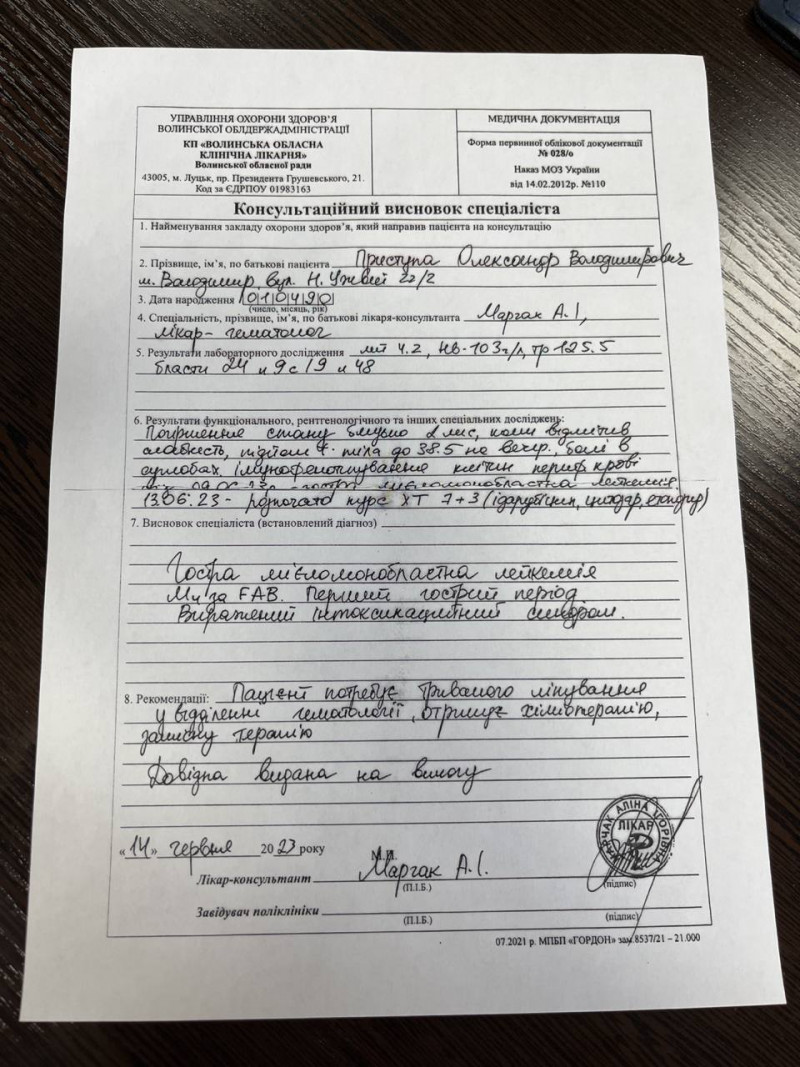 УПРАВЛІННЯ ОХОРОНИ ЗДОРОВ'Я
ВОЛИНСЬКОЇ ОБЛДЕРЖАДМІНІСТРАЦІЇ
КП «ВОЛИНСЬКА ОБЛАСНА
КЛІНІЧНА ЛІКАРНЯ»
Волинської обласної ради
43005, м. Луцьк, пр. Президента Грушевського, 21.
Код за ЄДРПОУ 01983163
МЕДИЧНА ДОКУМЕНТАЦІЯ
Форма первинної облікової документації
№ 028/о
Наказ МОЗ України
від 14.02.2012р. №110
Консультаційний висновок спеціаліста
1. Найменування закладу охорони здоров'я, який направив пацієнта на консультацію
2. Прізвище, ім'я, по батькові пацієнта Приступа Олександр Володимирович
м. Володимир, вул. Н. Ужвій 22/2
3. Дата народження 010490
(число, місяць, рік)
4. Спеціальність, прізвище, ім'я, по батькові лікаря-консультанта Марчак А.І,
лікар-гематолог
5. Результати лабораторного дослідження лей 4.2, Нв-103г/л, тр 125.5
бласти 24 п 9 с 19 л 48
6. Результати функціонального, рентгенологічного та інших спеціальних досліджень:
Погіршення стану близько 2 міс, коли відмітив
слабкість, підйом t° тіла до 38.5 на вечір, болі в
суглобах. Імунофенотипування клітин периф. крові
гостра мієломонобластна лейкемія.
13.06.23 - розпочато курс ХТ 7+3 (ідарубіцин, цитозар,
7. Висновок спеціаліста (встановлений діагноз)
Гостра мієломонобластна лейкемія
М4 за FAB. Перший гострий період
Виражений інтоксикаційний синдром.
8. Рекомендації: Пацієнт потребує тривалого лікування
у відділенні гематології, отримує хіміотерапію,
замісну терапію
Довідка видана на вимогу
«14» червня 2023 року
М.П.
Лікар-консультант Марчак А.І.
(П.І.Б.)
(підпис)
МАРЧАК АЛІНА ІГОРІВНА
ЛІКАР
Завідувач поліклініки
(П.І.Б.)
(підпис)
07.2021 р. МПБП «ГОРДОН» зам.8537/21 – 21.000